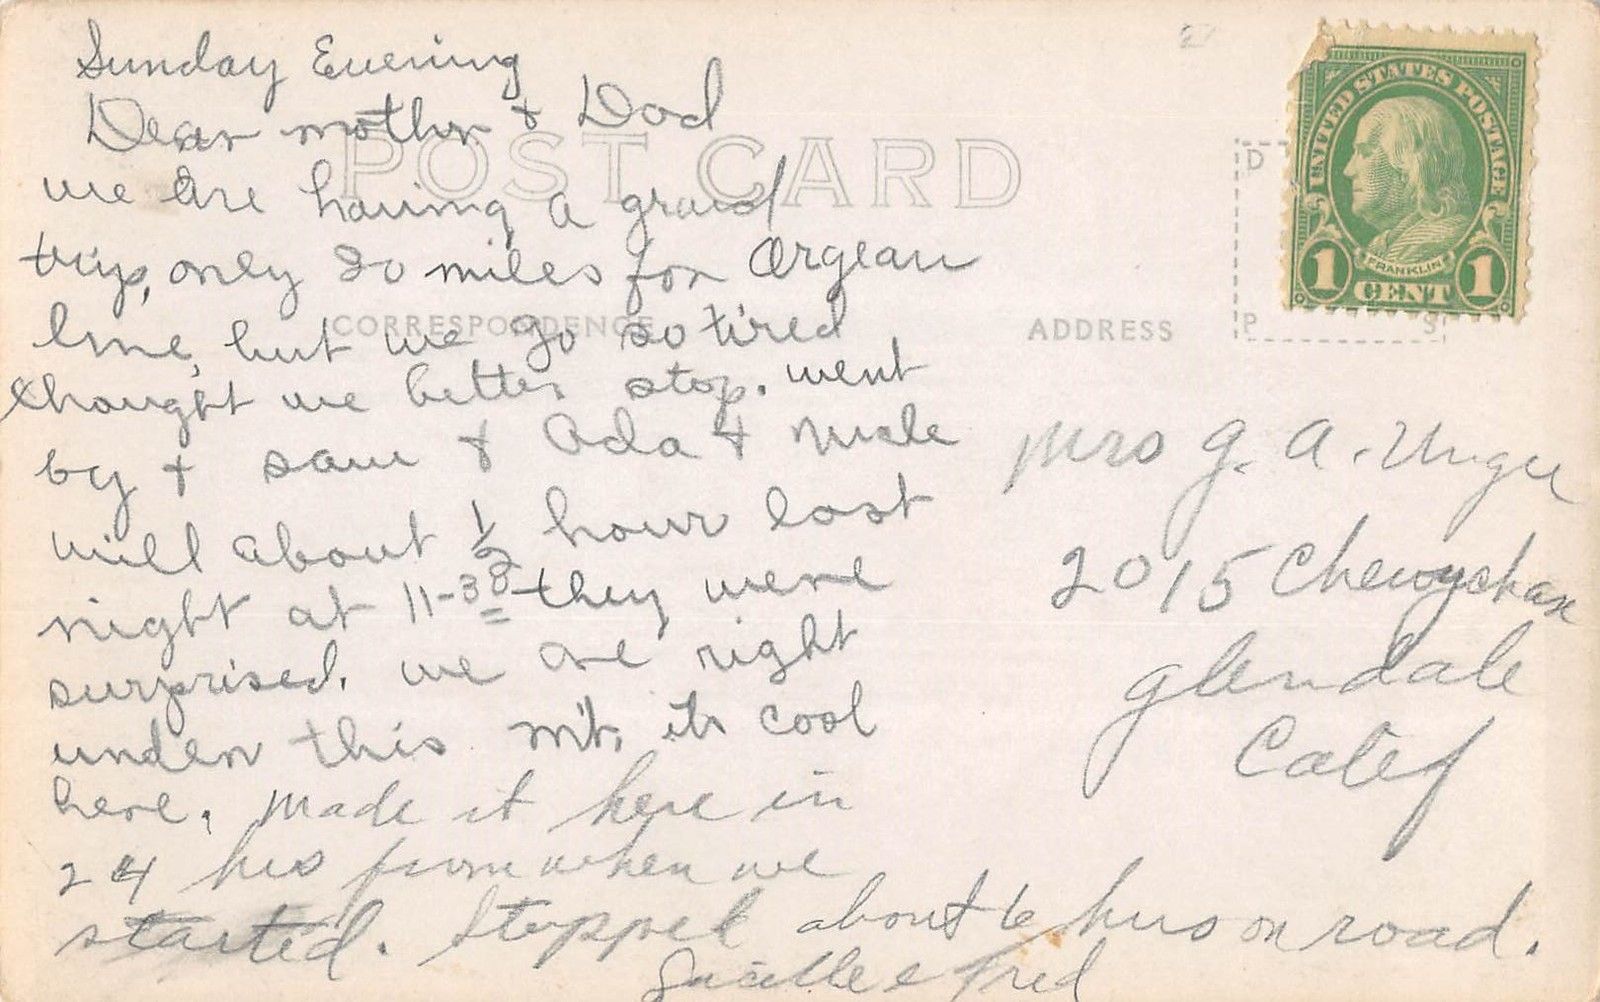 Sunday Evening
Dear mother + Dad
POST CARD
we are having a grand
trip, only 30 miles for Orgean
line, but we go so tired
CORRESPONDENCE
thought we better stop. went
by + saw & Ada + Uncle
will about 1/2 hour last
night at 11-30 they were
surprised. we are right
under this mt. its cool
here. Made it here in
24 hrs from when we
started. Stopped about 6 hurs on road.
Lucille & Fred
ADDRESS
Mrs G. A. Unger
2015 Chevychase
Glendale
Calif
UNITED STATES POSTAGE
FRANKLIN
1 CENT 1
P S
D